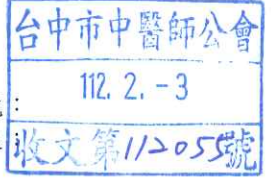 台中市中醫師公會
112. 2. -3
收文第112055號